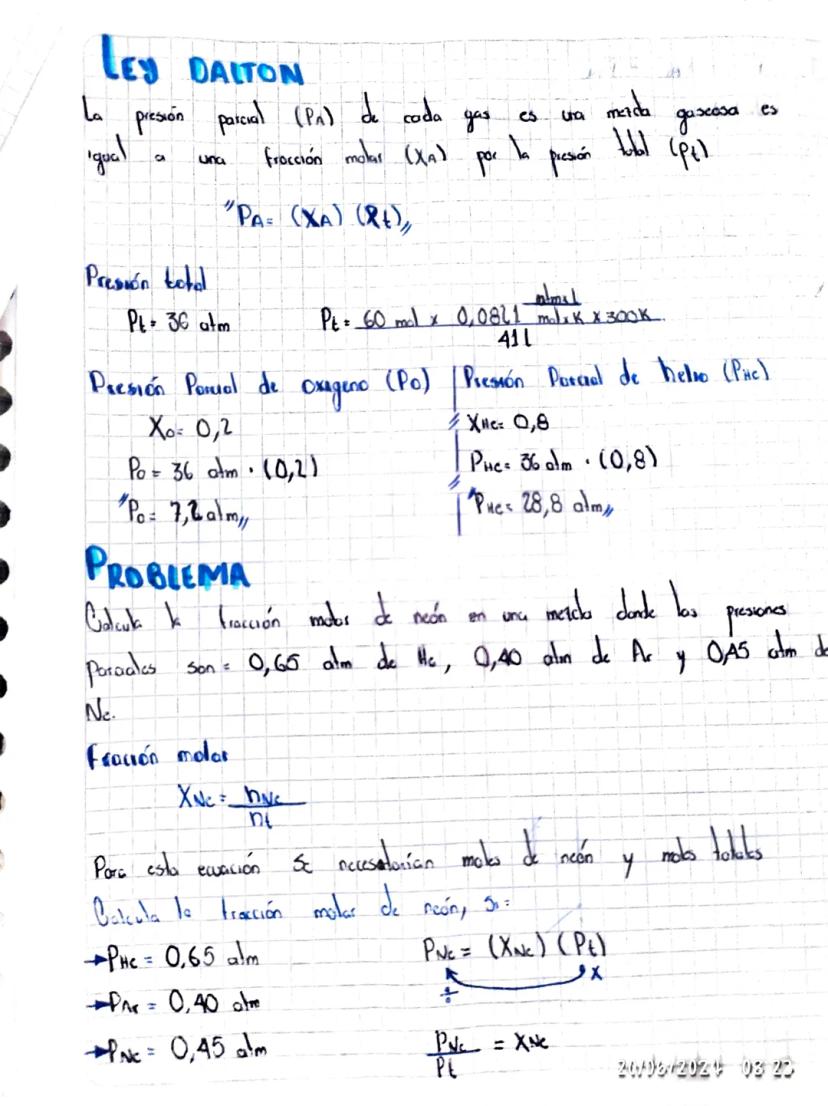 LEY DALTON
La presión parcial (PA) de cada gas es una mezcla gaseosa es
igual a una fracción molar (XA) por la presión total (Pt)
"PA = (XA) (Pt)"
Presión total
Pt = 36 atm
Pt = 60 mol x 0,0821 atmxl / molxK x 300K / 41 l
Presión Parcial de oxigeno (Po)
Xo = 0,2
Po = 36 atm · (0,2)
"Po = 7,2 atm"
Presión Parcial de helio (PHe)
XHe = 0,8
PHe = 36 atm · (0,8)
"PHe = 28,8 atm"
PROBLEMA
Calcula la fracción molar de neón en una mezcla donde las presiones
parciales son = 0,65 atm de He, 0,40 atm de Ar y 0,45 atm de
Ne.
Fracción molar
XNe = nNe / nt
Para esta ecuación se necesitarian moles de neón y moles totales
Calcula la fracción molar de neón, si =
→PHe = 0,65 atm
→PAr = 0,40 atm
→PNe = 0,45 atm
PNe = (XNe) (Pt)
÷ x
PNe / Pt = XNe
08 23